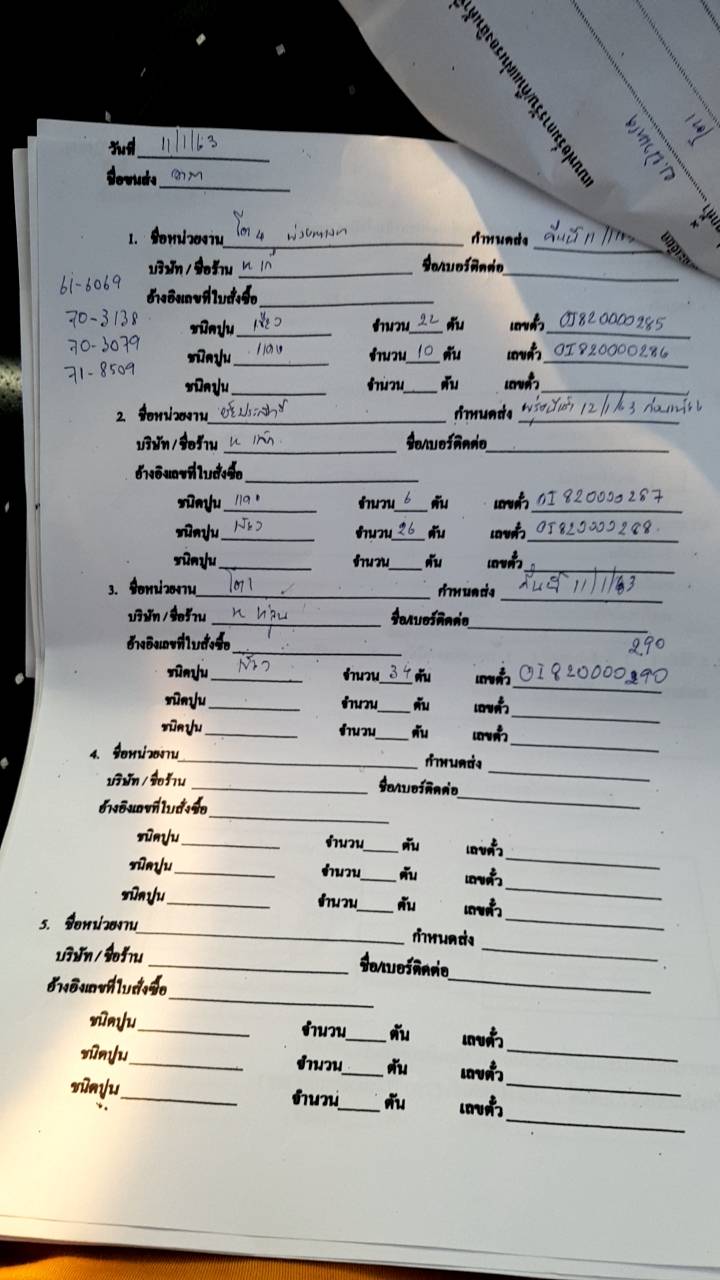 วันที่ 11/1/63
ชื่อขนส่ง
1. ชื่อหน่วยงาน โต 4 กำหนดส่ง คืนนี้ 11/1/63
บริษัท / ชื่อร้าน ชื่อ/เบอร์ติดต่อ
61-6069
อ้างอิงเลขที่ใบสั่งซื้อ
70-3138
ชนิดปูน เขียว จำนวน 22 ตัน เลขตั๋ว OI820000285
70-3079
ชนิดปูน แดง จำนวน 10 ตัน เลขตั๋ว OI820000286
71-8509
ชนิดปูน จำนวน ตัน เลขตั๋ว
2. ชื่อหน่วยงาน กำหนดส่ง พรุ่งนี้เช้า 12/1/63 ก่อนเที่ยง
บริษัท / ชื่อร้าน ชื่อ/เบอร์ติดต่อ
อ้างอิงเลขที่ใบสั่งซื้อ
ชนิดปูน แดง จำนวน 6 ตัน เลขตั๋ว OI820000287
ชนิดปูน เขียว จำนวน 26 ตัน เลขตั๋ว OI820000288
ชนิดปูน จำนวน ตัน เลขตั๋ว
3. ชื่อหน่วยงาน โต 1 กำหนดส่ง คืนนี้ 11/1/63
บริษัท / ชื่อร้าน ชื่อ/เบอร์ติดต่อ
อ้างอิงเลขที่ใบสั่งซื้อ 290
ชนิดปูน เขียว จำนวน 34 ตัน เลขตั๋ว OI820000290
ชนิดปูน จำนวน ตัน เลขตั๋ว
ชนิดปูน จำนวน ตัน เลขตั๋ว
4. ชื่อหน่วยงาน กำหนดส่ง
บริษัท / ชื่อร้าน ชื่อ/เบอร์ติดต่อ
อ้างอิงเลขที่ใบสั่งซื้อ
ชนิดปูน จำนวน ตัน เลขตั๋ว
ชนิดปูน จำนวน ตัน เลขตั๋ว
ชนิดปูน จำนวน ตัน เลขตั๋ว
5. ชื่อหน่วยงาน กำหนดส่ง
บริษัท / ชื่อร้าน ชื่อ/เบอร์ติดต่อ
อ้างอิงเลขที่ใบสั่งซื้อ
ชนิดปูน จำนวน ตัน เลขตั๋ว
ชนิดปูน จำนวน ตัน เลขตั๋ว
ชนิดปูน จำนวน ตัน เลขตั๋ว